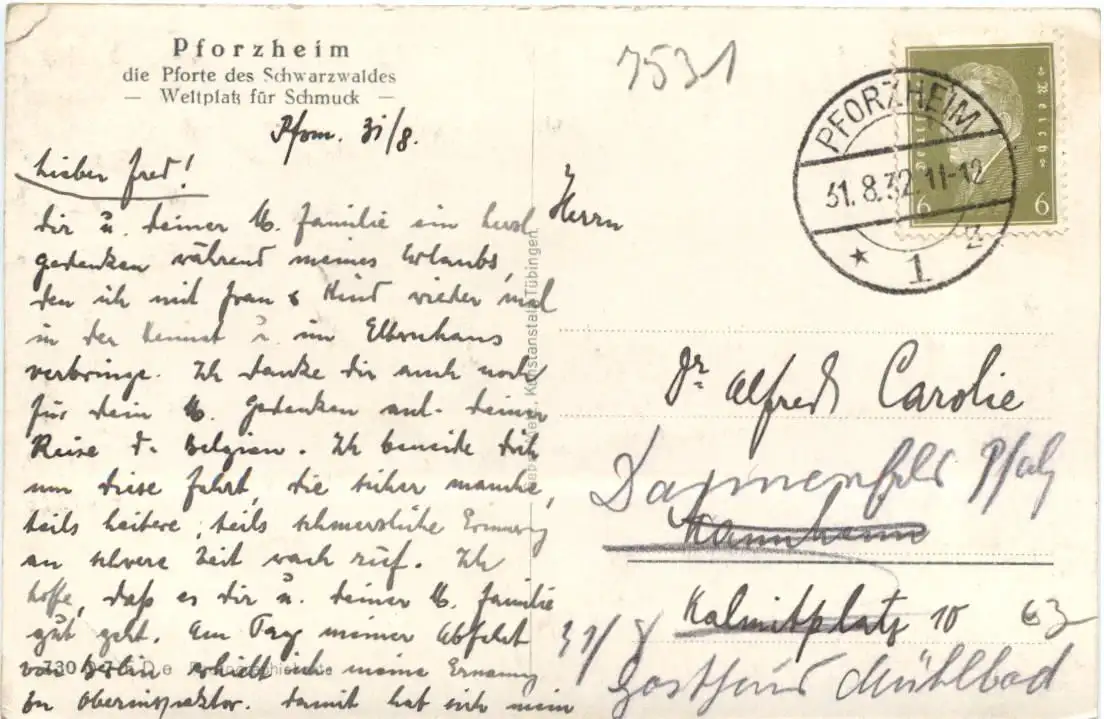 Pforzheim
die Pforte des Schwarzwaldes
— Weltplatz für Schmuck —
Pfom. 31/8.
Lieber Fred!
Dir u. deiner lb. Familie ein herzl.
gedenken während meines Urlaubs,
den ich mit Frau & Kind wieder mal
in der Heimat u. im Elternhaus
verbringe. Ich danke dir auch noch
für dein lb. Gedenken auf deiner
Reise d. Belgien. Ich beneide dich
um diese Fahrt, die sicher manche,
teils heitere, teils schmerzliche Erinnerg
an schwere Zeit wach rief. Ich
hoffe, daß es dir u. deiner lb. Familie
gut geht. Am Tag meiner Abfahrt
von Berlin erhielt ich meine Ernennung
zu Oberinspektor. damit hat sich mein
7531
PFORZHEIM
31.8.32.11-12
* 1 z
Deutsches Reich
6 6
Herrn
Dr. Alfred Carolie
Dannenfels Pfalz
Mannheim
Kalmitplatz 10
63
31/8
Gasthaus Mühlbad
Tübingen